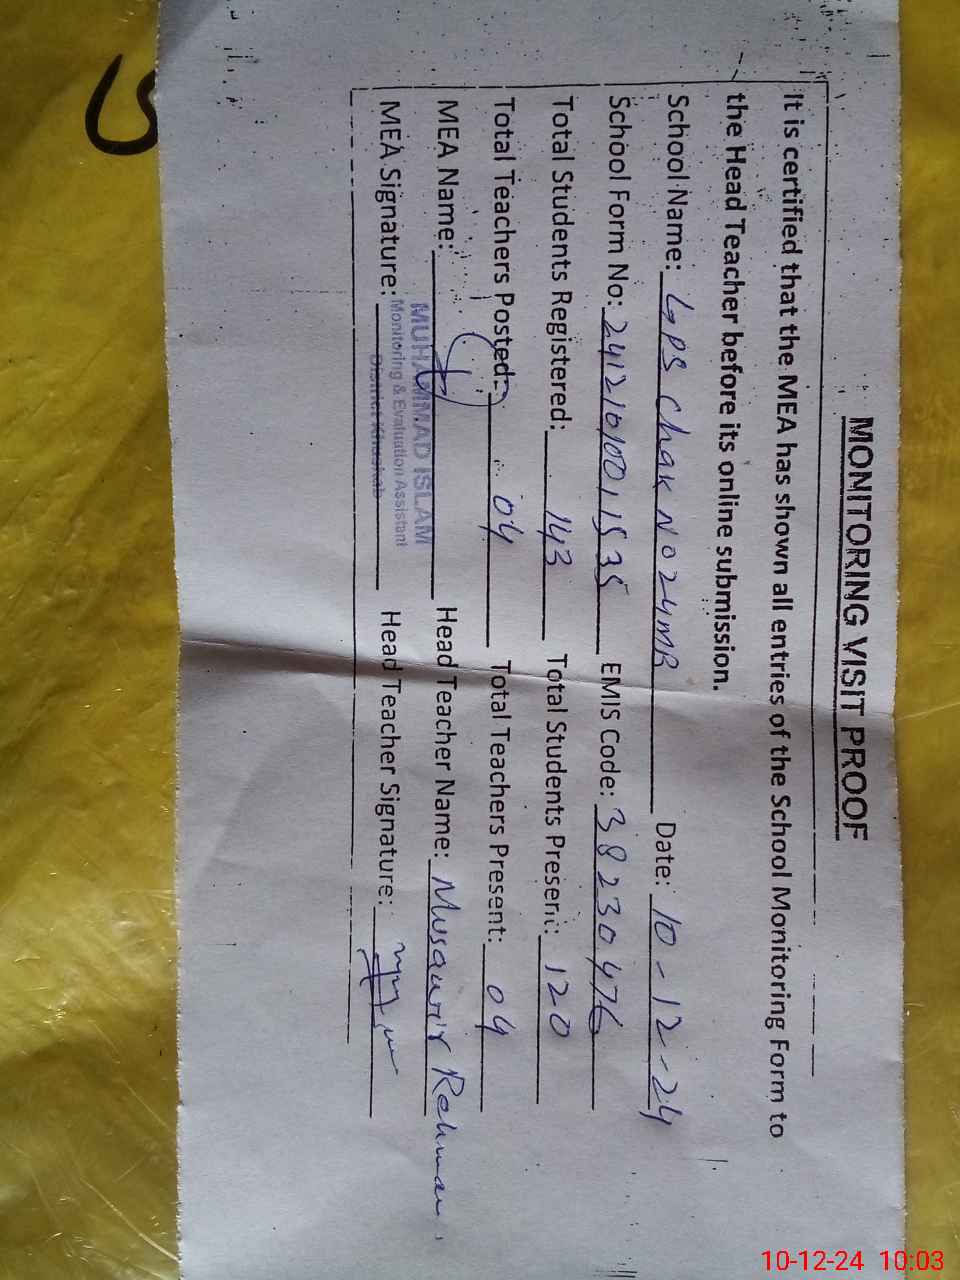 MONITORING VISIT PROOF
It is certified that the MEA has shown all entries of the School Monitoring Form to
the Head Teacher before its online submission.
School Name: GPS Chak No 24MB Date: 10-12-24
School Form No: 24121010015 35 EMIS Code: 38230476
Total Students Registered: 143 Total Students Present: 120
Total Teachers Posted: 04 Total Teachers Present: 04
MEA Name: MUHAMMAD ISLAM Head Teacher Name: Musawir Rehman
Monitoring & Evaluation Assistant
MEA Signature: District Khushab Head Teacher Signature:
10-12-24 10:03